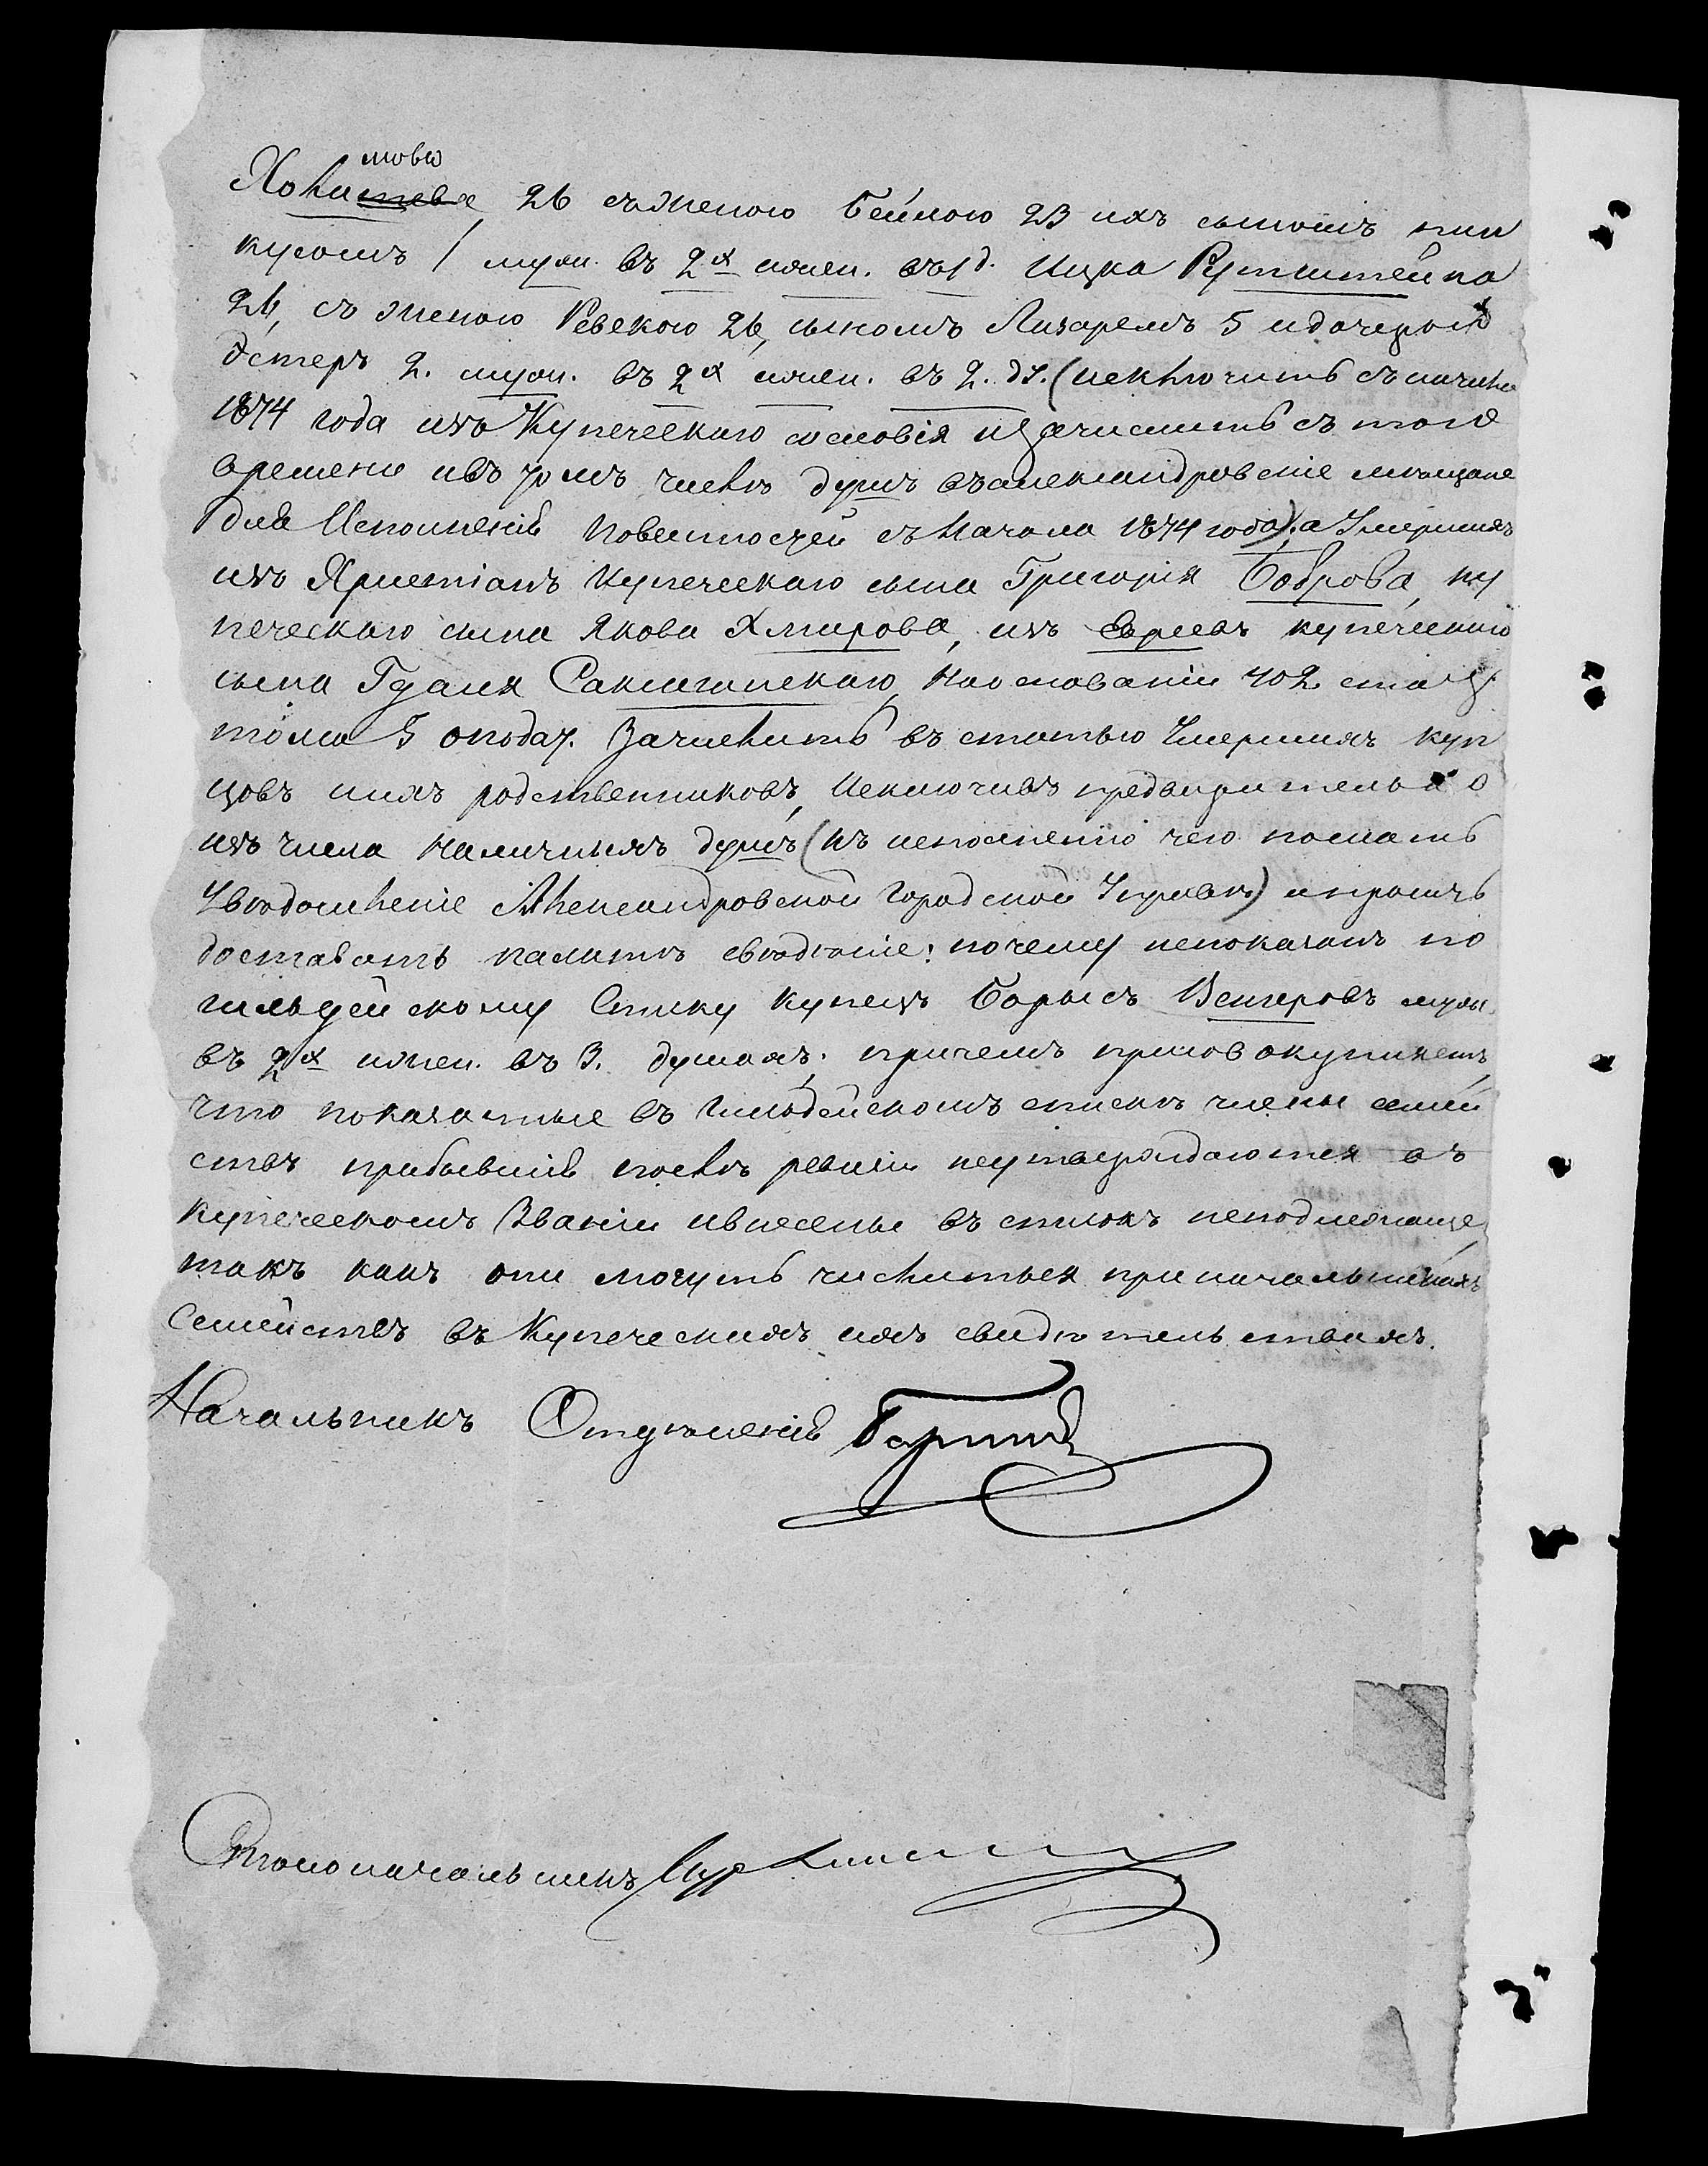 мовю
Хокишева, 26 съ женою Бейлою 23 ихъ сыномъ пин
кусомъ 1 муж. въ 2х жен. въ 1 д. Ицка Рутштейна
26, съ женою Ревекою 26, сыномъ Лазаремъ 5 и дочерью
Эстеръ 2. муж. въ 2х жен. въ 2. дх. (исключить съ начала
1874 года изъ Купеческаго сословія и зачислить съ того
времени въ томъ числѣ душъ въ александровскіе мѣщане
для Исполненія Повинностей съ Начала 1874 года); а Умершихъ
изъ Христіанъ Купеческаго сына Григорія Боброва, ку
печескаго сына Якова Хмарова, изъ Евреевъ купеческаго
сына Гдаля Саксаганскаго, На основаніи 402 ста у.
тома 5 о подат. Зачислить въ статью Умершихъ куп
цовъ и ихъ родственниковъ, Исключивъ предварительно
изъ числа Наличныхъ душъ (къ исполненію чего послать
Увѣдомленіе Александровской Городской Управѣ) и просить
доставить палатѣ свѣденіе: почему непоказанъ по
гильдейскому Списку купецъ Борысъ Венгеровъ муж.
въ 2х жен. въ 3. душахъ; причемъ присовокупляетъ,
что показанные въ Гильдейскомъ спискѣ члены семей
ствъ прибывшія послѣ ревизіи неутверждаются въ
Купеческомъ Званіи и внесены въ списокъ неподлежаще,
такъ какъ они могутъ числиться при начальникахъ
Семействъ въ Купеческихъ ихъ свидѣтельствахъ.
Начальникъ Отдѣленія
Столоначальникъ